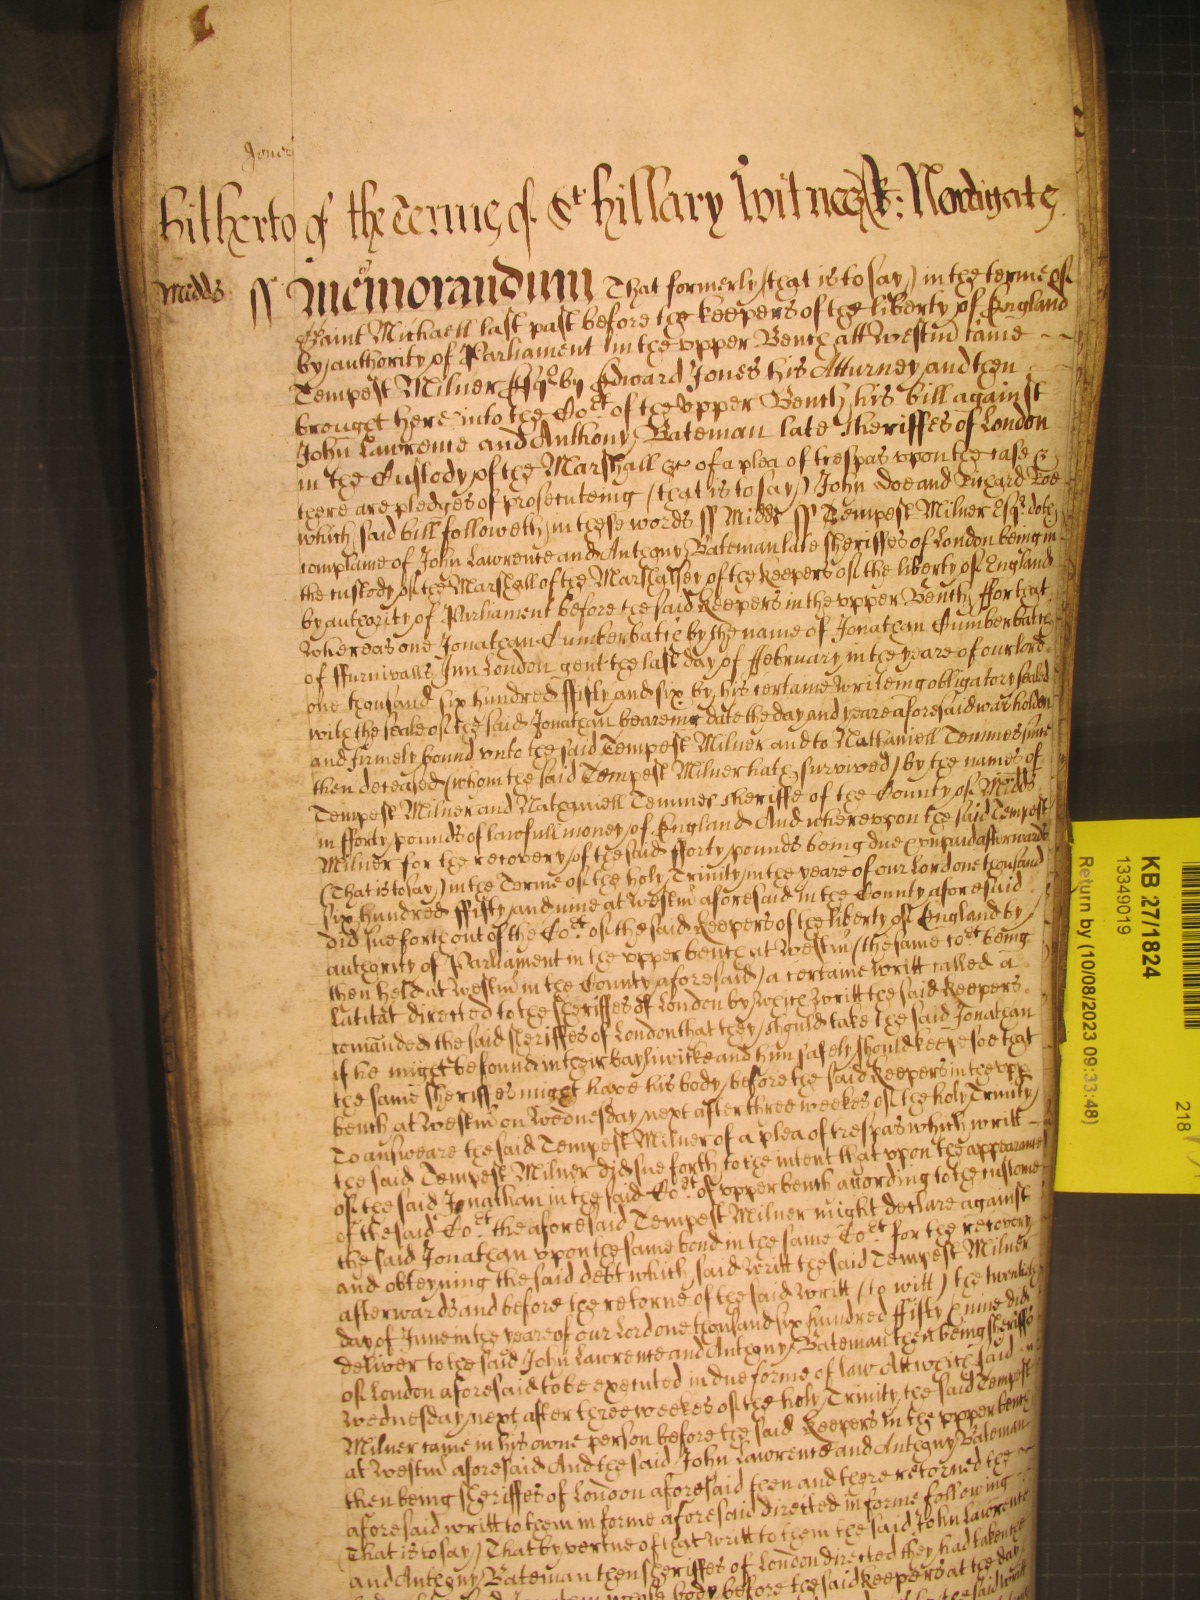 Jones
hitherto of the Terme of St hillary Witnes: Nerdigate
Midds ss Memorandum That formerly (that is to say) in the terme of
Saint Michaell last past before the keepers of the liberty of England
by authority of Parliament in the upper Bench att Westm came
Tempest Milner Esqr by Edward Jones his Atturney and then
brought here into the Cort of the upper Bench his bill against
John Lawrence and Anthony Bateman late Sheriffes of London
in the Custody of the Marshall &c of a plea of trespas upon the case &
there are pledges of prosecuteing (that is to say) John Doe and Richard Roe
which said bill followeth in these words ss Midds ss Tempest Milner Esqr doth
complaine of John Lawrence and Anthony Bateman late sheriffes of London being in
the custody of the Marshall of the Marshalsey of the keepers of the liberty of England
by authority of Parliament before the said keepers in the upper Bench ffor that
Whereas one Jonathan Cumberbatch by the name of Jonathan Cumberbatch
of ffurnivalls Inn London gent the last day of ffebruary in the yeare of our lord
one thousand six hundred ffifty and six by his certaine writeing obligatory sealed
with the seale of the said Jonathan beareing date the day and yeare aforesaid was holden
and firmely bound unto the said Tempest Milner and to Nathaniell Temmes since
then deceased (whom the said Tempest Milner hath survived) by the names of
Tempest Milner and Nathaniell Temmes sheriffe of the County of Midds
in fforty pounds of lawfull money of England And whereupon the said Tempest
Milner for the recovery of the said fforty pounds being due & unpaid afterwards
(That is to say) in the Terme of the holy Trinity in the yeare of our Lord one thousand
six hundred ffifty and nine at Westm aforesaid in the County aforesaid
did sue forth out of the Cort of the said keepers of the liberty of England by
authority of Parliament in the upper bench at Westm (the same Cort being
then held at Westm in the County aforesaid) a certaine writt called a
Latitat directed to the Sheriffes of London by which writt the said keepers
comanded the said sheriffes of London that they should take the said Jonathan
if he might be found in their baylywicke and him safely should keepe soe that
the same sheriffes might have his body before the said keepers in the upp
bench at Westm on Wednesday next after three weekes of the holy Trinity
To answeare the said Tempest Milner of a plea of trespas which writt
the said Tempest Milner did sue forth to the intent that upon the appearance
of the said Jonathan in the said Cort of upper bench according to the custome
of the said Cort the aforesaid Tempest Milner might declare against
the said Jonathan upon the same bond in the same Cort for the recovery
and obteyning the said debt which said writt the said Tempest Milner
afterwards and before the retorne of the said writt (to witt) the twentieth
day of June in the yeare of our Lord one thousand six hundred ffifty & nine did
deliver to the said John Lawrence and Anthony Bateman then being sheriffs
of London aforesaid to be executed in due forme of law Att which said
Wednesday next after three weekes of the holy Trinity the said Tempest
Milner came in his owne person before the said keepers in the upper bench
at Westm aforesaid And the said John Lawrence and Anthony Bateman
then being sheriffes of London aforesaid then and there retorned the
aforesaid writt to them in forme aforesaid directed in forme following
(That is to say) That by vertue of that writt to them the said John Lawrence
and Anthony Bateman then sheriffes of London directed they had taken the
whose body before the said keepers at the day
KB 27/1824
13349019
Return by (10/08/2023 09:33:48)
218